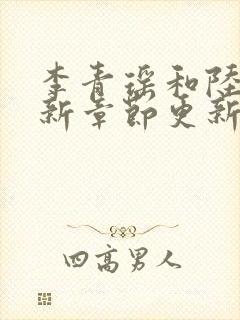 李青瑶和陸
新章節更新
四高男人